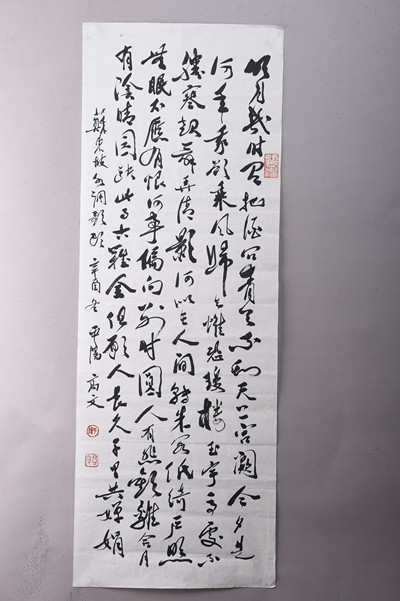 明月幾时有把酒问青天不知天上宫阙今夕是
何年我欲乘风歸去惟恐瓊楼玉宇高处不
勝寒起舞弄清影何似在人间转朱阁低绮户照
無眠不應有恨何事偏向别时圆人有悲歡離合月
有陰晴圆缺此事古難全但願人长久千里共嬋娟
蘇东坡水调歌头 辛酉冬 高文